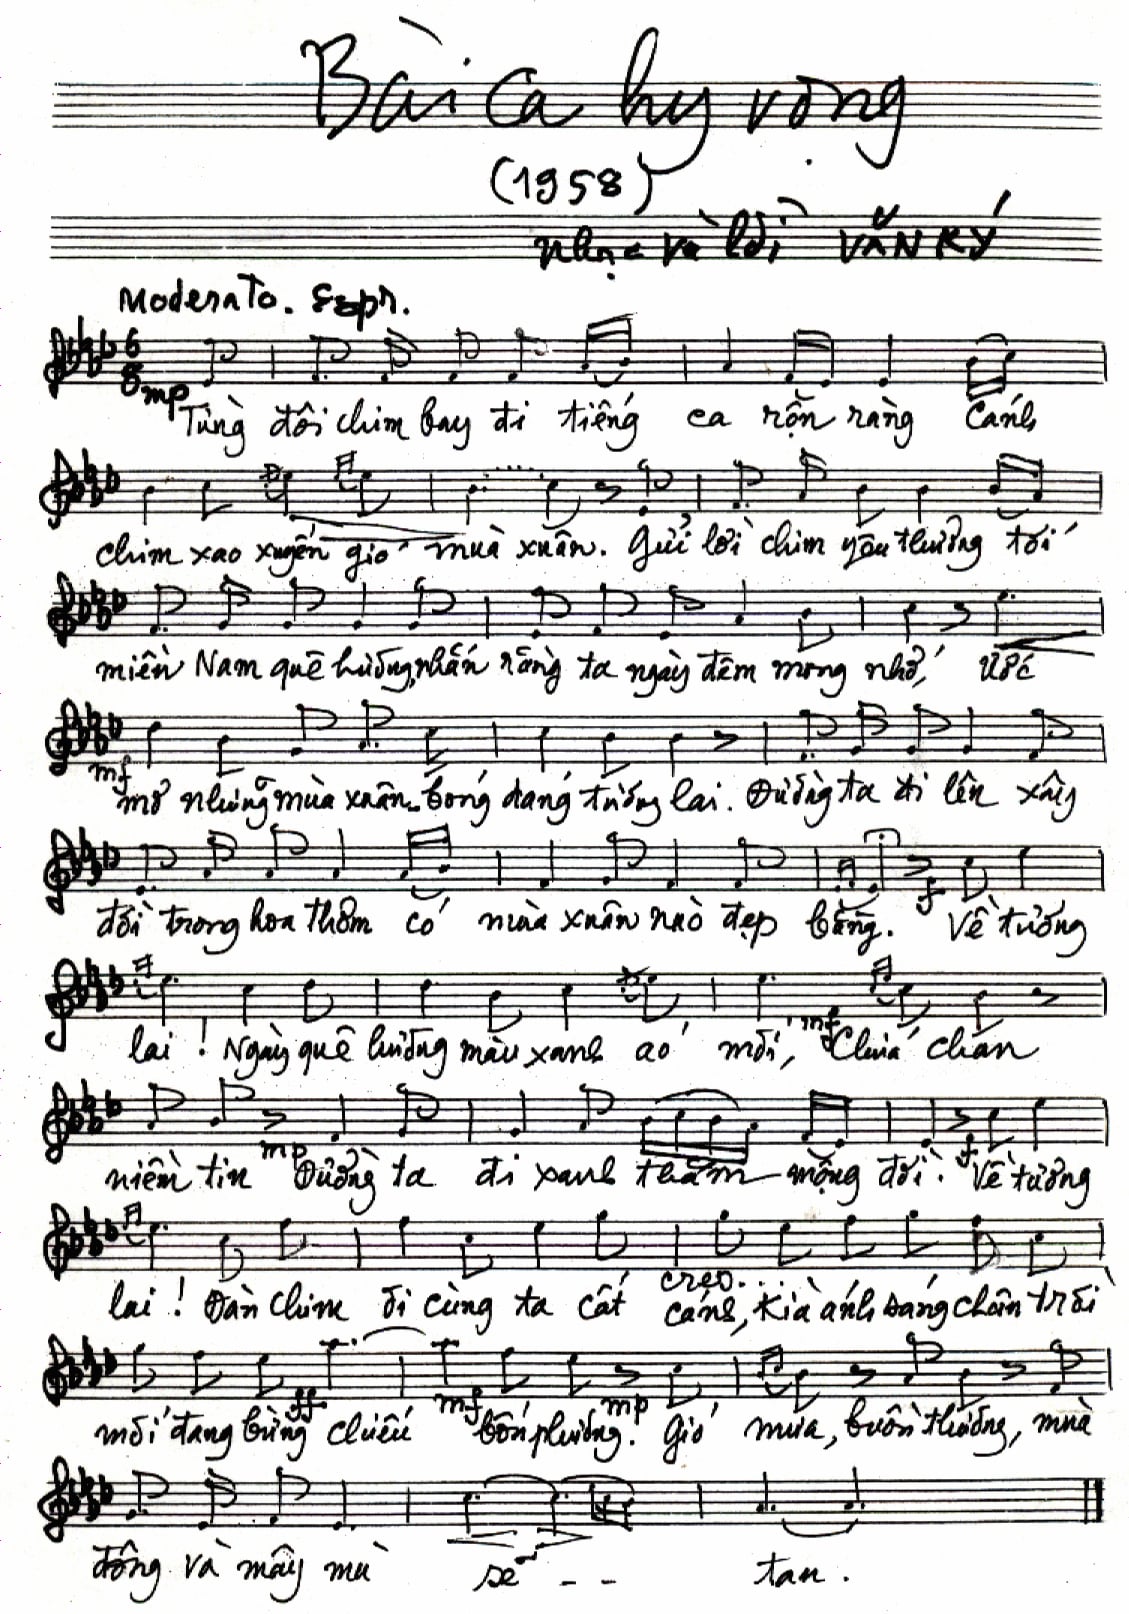 Bài ca hy vọng
(1958)
nhạc và lời VĂN KÝ
Moderato. Espr.
6
8
mp
Từng đôi chim bay đi tiếng ca rộn ràng Cánh
chim xao xuyến gió mùa xuân. Gửi lời chim yêu thương tới
miền Nam quê hương, nhắn rằng ta ngày đêm mong nhớ, Ước
mf
mơ những mùa xuân bóng dáng tương lai. Đường ta đi lên xây
f
đời trong hoa thơm có mùa xuân nào đẹp bằng. Về tương
mf
lai! Ngày quê hương màu xanh áo mới, Chứa chan
mp f
niềm tin Đường ta đi xanh thắm mộng đời. Về tương
cres....
lai! Đàn chim ơi cùng ta cất cánh, Kìa ánh sáng chân trời
ff mf mp
mới đang bừng chiếu bốn phương. Gió mưa, buồn thương, mùa
đông và mây mù sẽ - - tan.